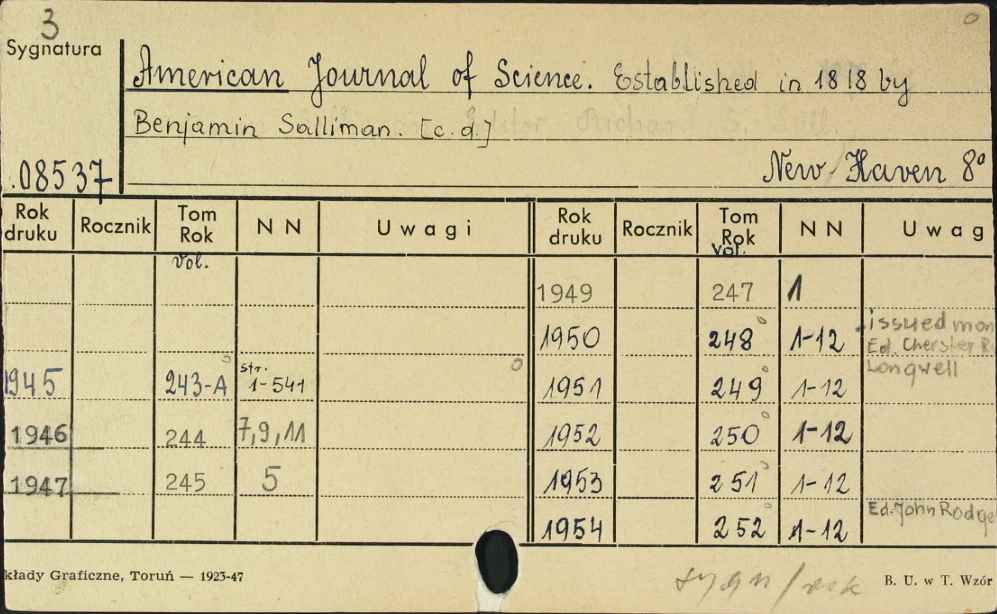 3
Sygnatura
American Journal of Science. Established in 1818 by
Benjamin Salliman. [c.d.]
.08537
New Haven 8°
Rok druku Rocznik Tom Rok NN Uwagi Rok druku Rocznik Tom Rok NN Uwag
vol. vol.
1949 247 1
1950 248 1-12 issued mon
Ed. Chersher R
Longwell
1945 243-A str. 1-541 1951 249 1-12
1946 244 7,9,11 1952 250 1-12
1947 245 5 1953 251 1-12
1954 252 1-12 Ed. John Rodge
kłady Graficzne, Toruń — 1923-47
sygn/rok
B. U. w T. Wzór